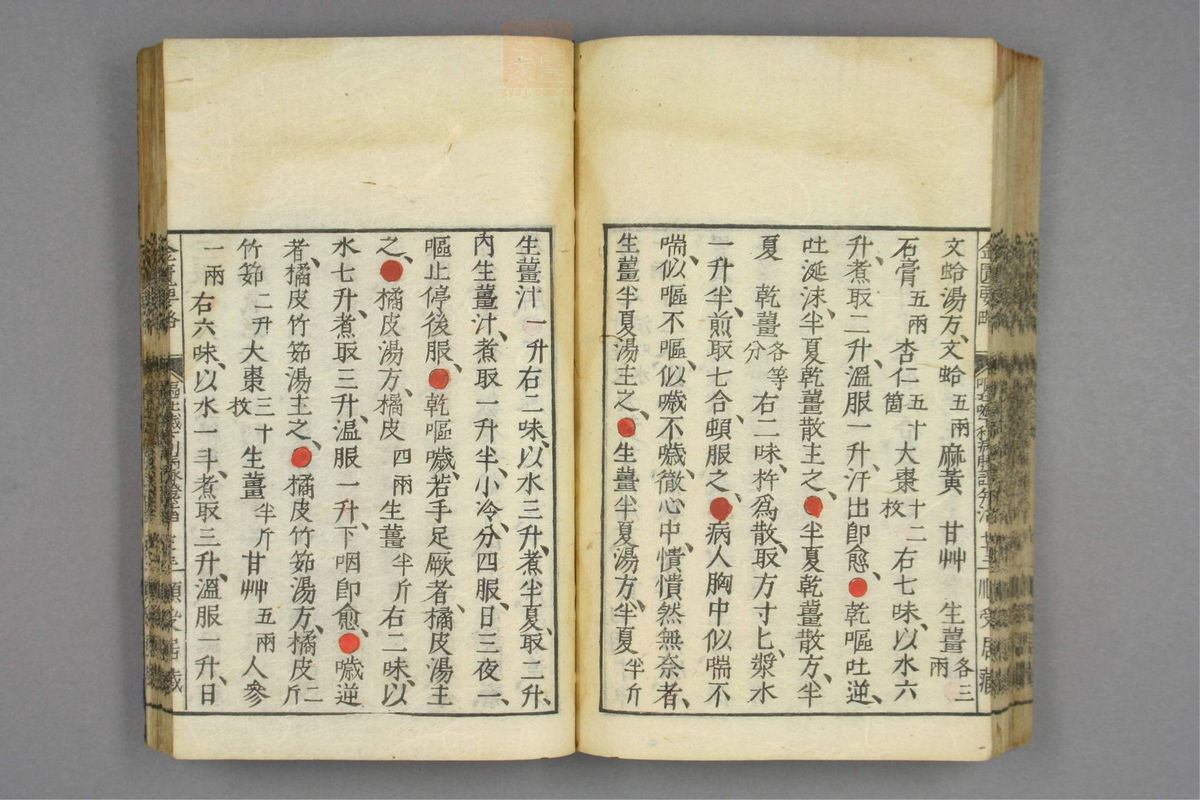 文蛤湯方、文蛤五兩麻黃 甘艸 生薑各三兩
石膏五兩杏仁五十箇大棗十二枚右七味、以水六
升、煮取二升、溫服一升、汗出卽愈、乾嘔吐逆、
吐涎沫、半夏乾薑散主之、半夏乾薑散方、半
夏 乾薑各等分右二味、杵爲散、取方寸匕、漿水
一升半、煎取七合、頓服之、病人胸中似喘不
喘、似嘔不嘔、似噦不噦、徹心中、憒憒然無奈者、
生薑半夏湯主之、生薑半夏湯方、半夏半斤
生薑汁一升右二味、以水三升、煮半夏、取二升、
內生薑汁、煮取一升半、小冷、分四服、日三夜一、
嘔止停後服、乾嘔噦、若手足厥者、橘皮湯主
之、橘皮湯方、橘皮四兩生薑半斤右二味、以
水七升、煮取三升、溫服一升、下咽卽愈、噦逆
者、橘皮竹筎湯主之、橘皮竹筎湯方、橘皮二斤
竹筎二升大棗三十枚生薑半斤甘艸五兩人參
一兩右六味、以水一斗、煮取三升、溫服一升、日